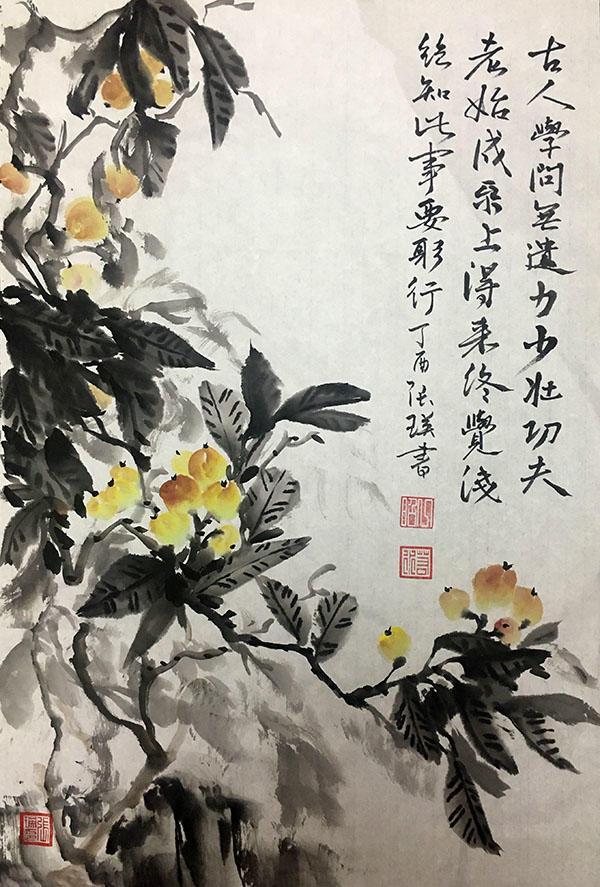 古人學問無遺力少壯功夫
老始成帋上得来終覺淺
絶知此事要躬行丁酉張瑛書